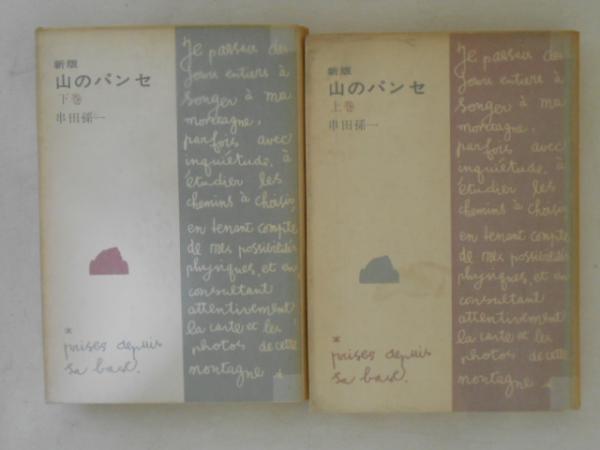 新版
山のパンセ
下巻
串田孫一
Je passais des
jours entiers à
songer à ma
montagne,
parfois avec
inquiétude, à
étudier les
chemins à choisir,
en tenant compte
de mes possibilités
physiques, et en
consultant
attentivement
la carte et les
photos de cette
montagne *
* prises depuis
sa base.
新版
山のパンセ
上巻
串田孫一
Je passais des
jours entiers à
songer à ma
montagne,
parfois avec
inquiétude, à
étudier les
chemins à choisir,
en tenant compte
de mes possibilités
physiques, et en
consultant
attentivement
la carte et les
photos de cette
montagne *
* prises depuis
sa base.